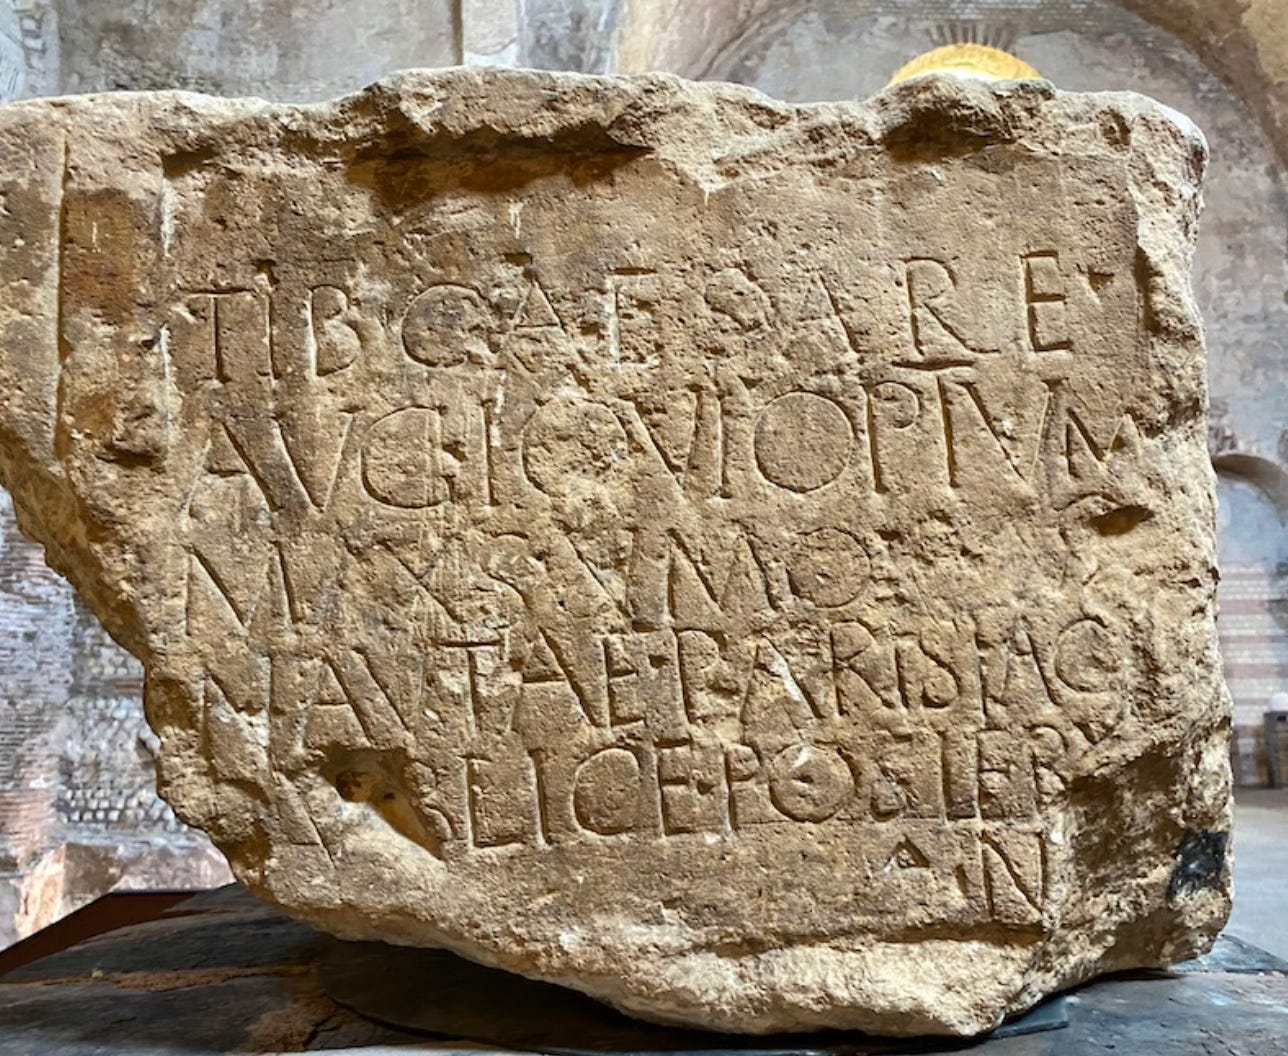 TIB·CAESARE·
AVG·IOVI OPTVM
MAXSVMO
NAVTAE·PARISIAC
BLICE·POSIER
AN